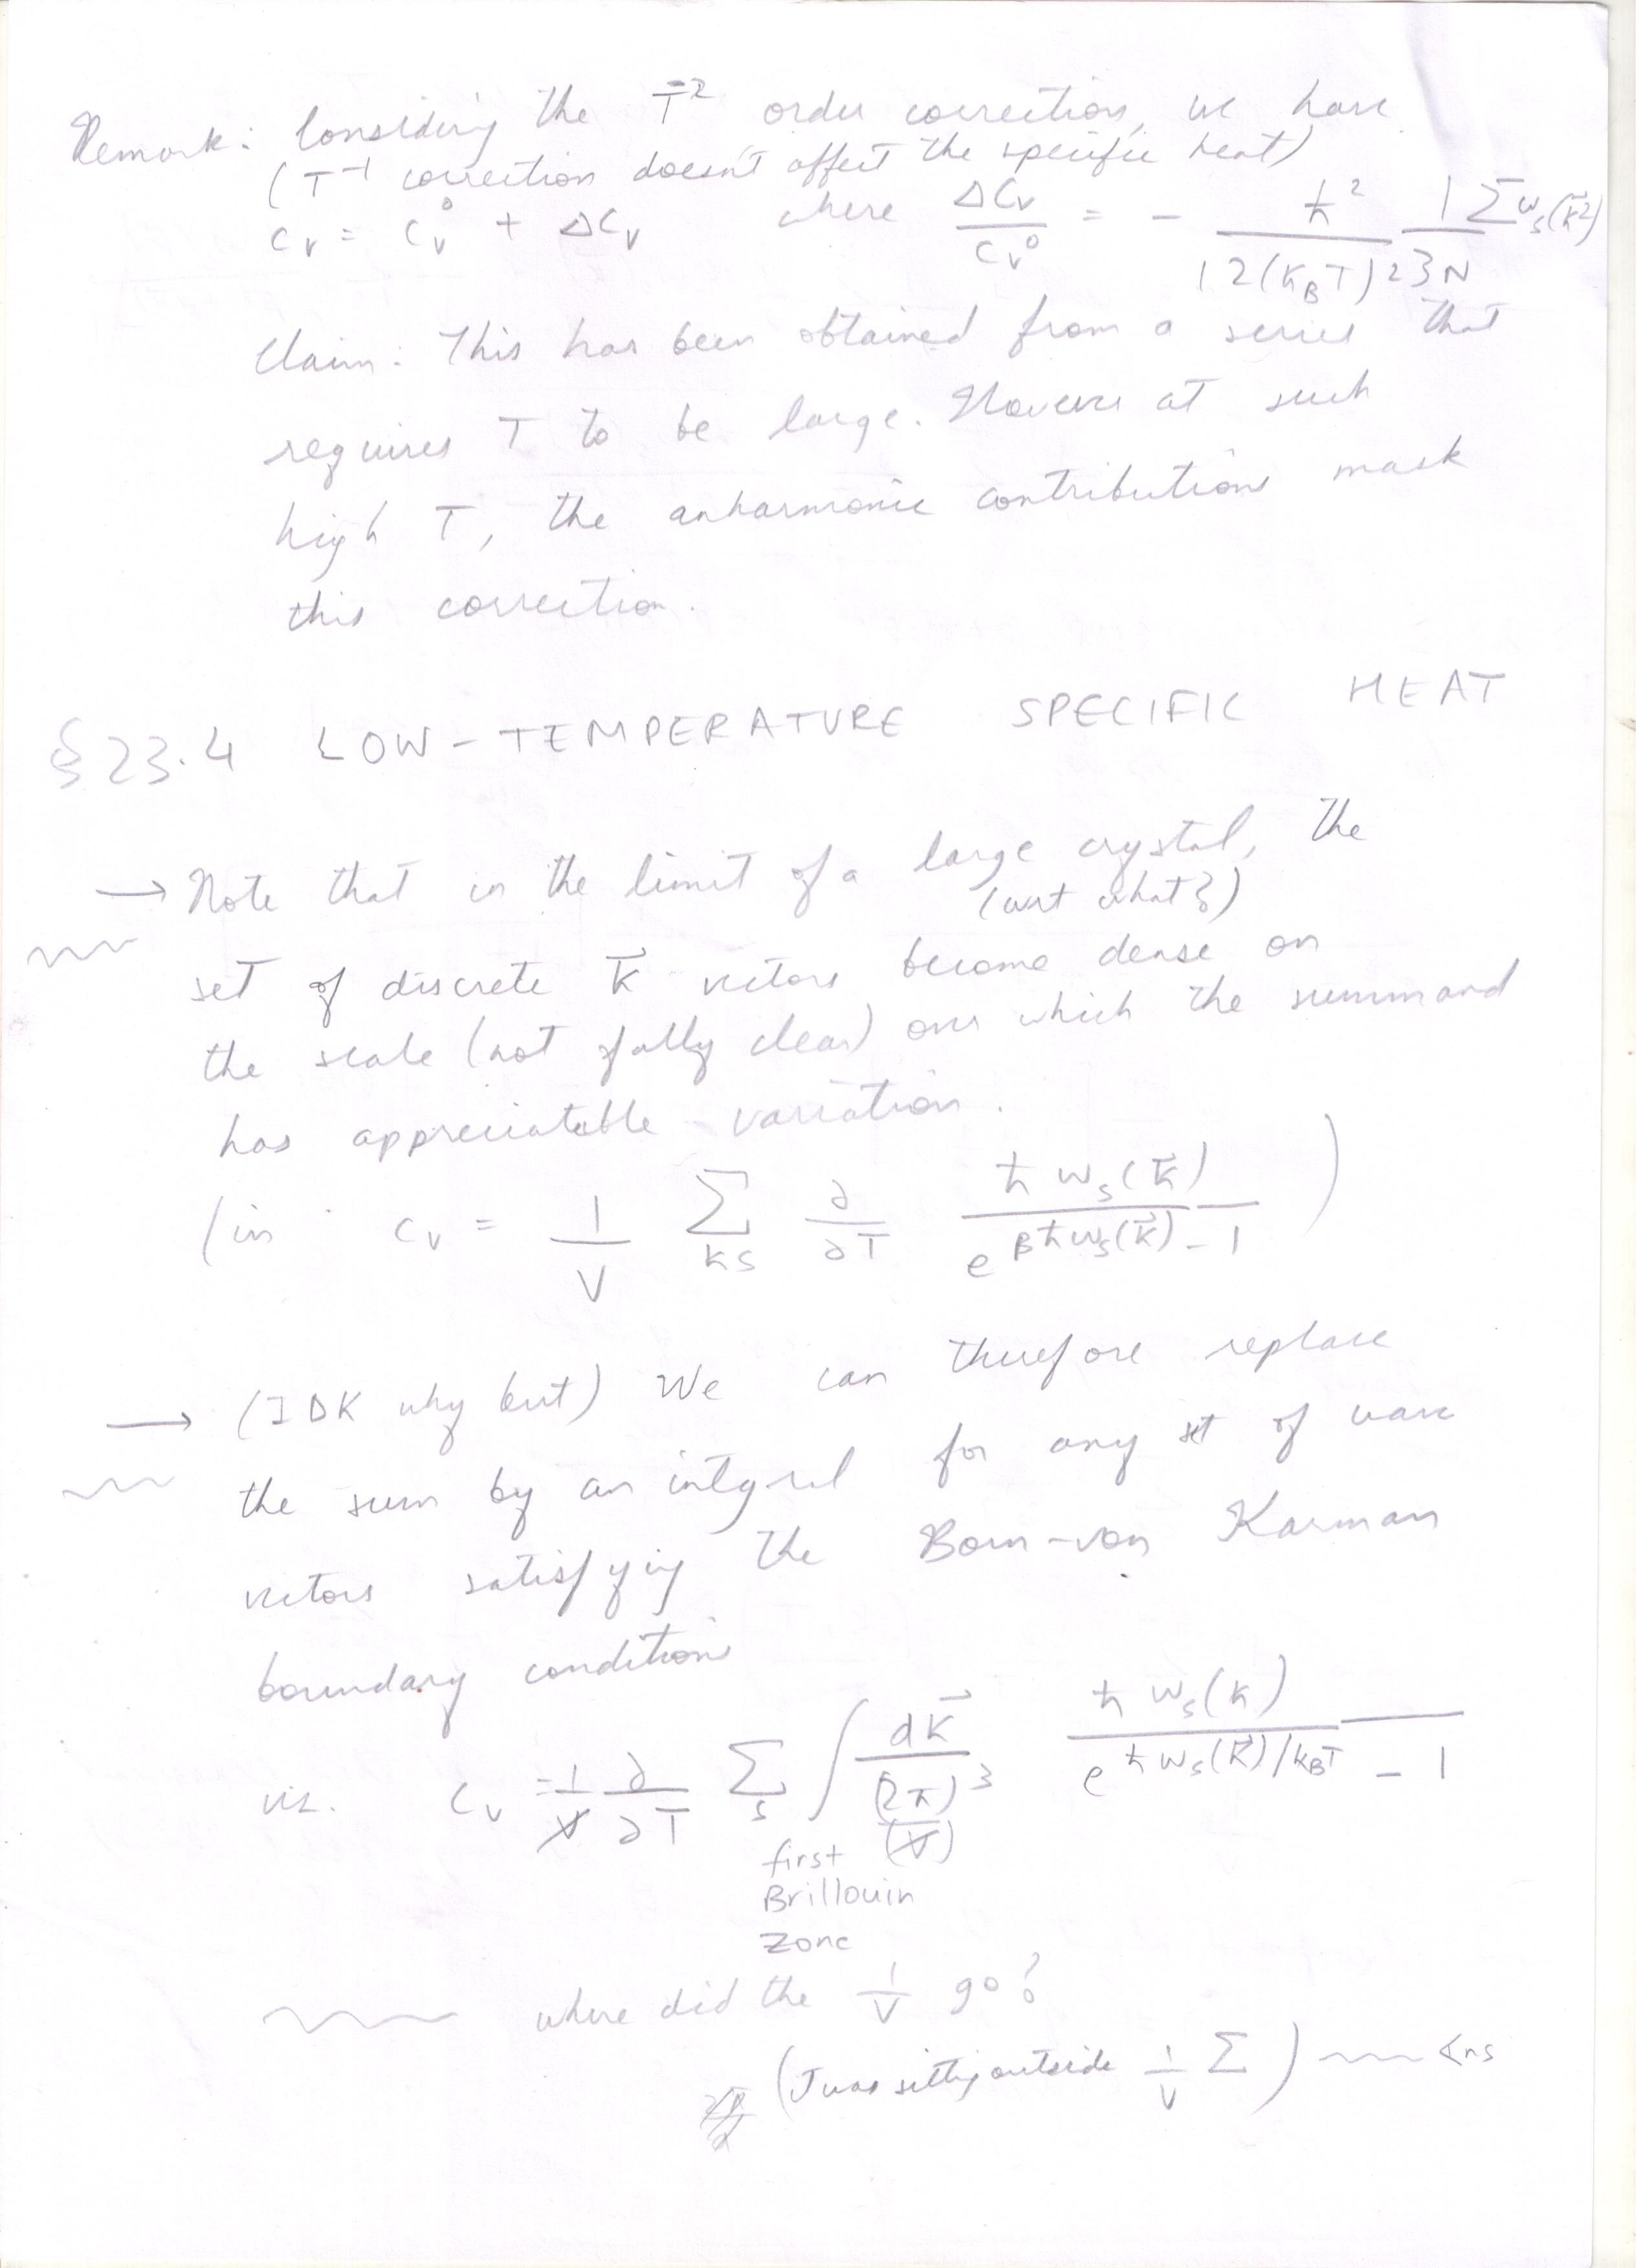 Remark: Considering the T⁻² order correction, we have
(T⁻¹ correction doesn't affect the specific heat)
c_v = c_v⁰ + Δc_v where Δc_v / c_v⁰ = - ħ² / 12(k_B T)² 1/3N Σ ω_s(k⃗)²
Claim: This has been obtained from a series that
requires T to be large. However at such
high T, the anharmonic contributions mask
this correction.
§ 23.4 LOW-TEMPERATURE SPECIFIC HEAT
→ Note that in the limit of a large crystal, the
(wrt what?)
set of discrete k⃗ vectors become dense on
the scale (not fully clear) over which the summand
has appreciatable variation.
(in c_v = 1/V Σ_ks ∂/∂T ħω_s(k⃗) / e^{βħω_s(k⃗)} - 1 )
→ (IDK why but) We can therefore replace
the sum by an integral for any set of wave
vectors satisfying the Born-von Karman
boundary conditions
viz. c_v = 1/V ∂/∂T Σ_s ∫ dk⃗ / (2π)³/(V) ħω_s(k) / e^{ħω_s(k⃗)/k_BT} - 1
first
Brillouin
Zone
where did the 1/V go?
(It was sitting outside 1/V Σ) Ans